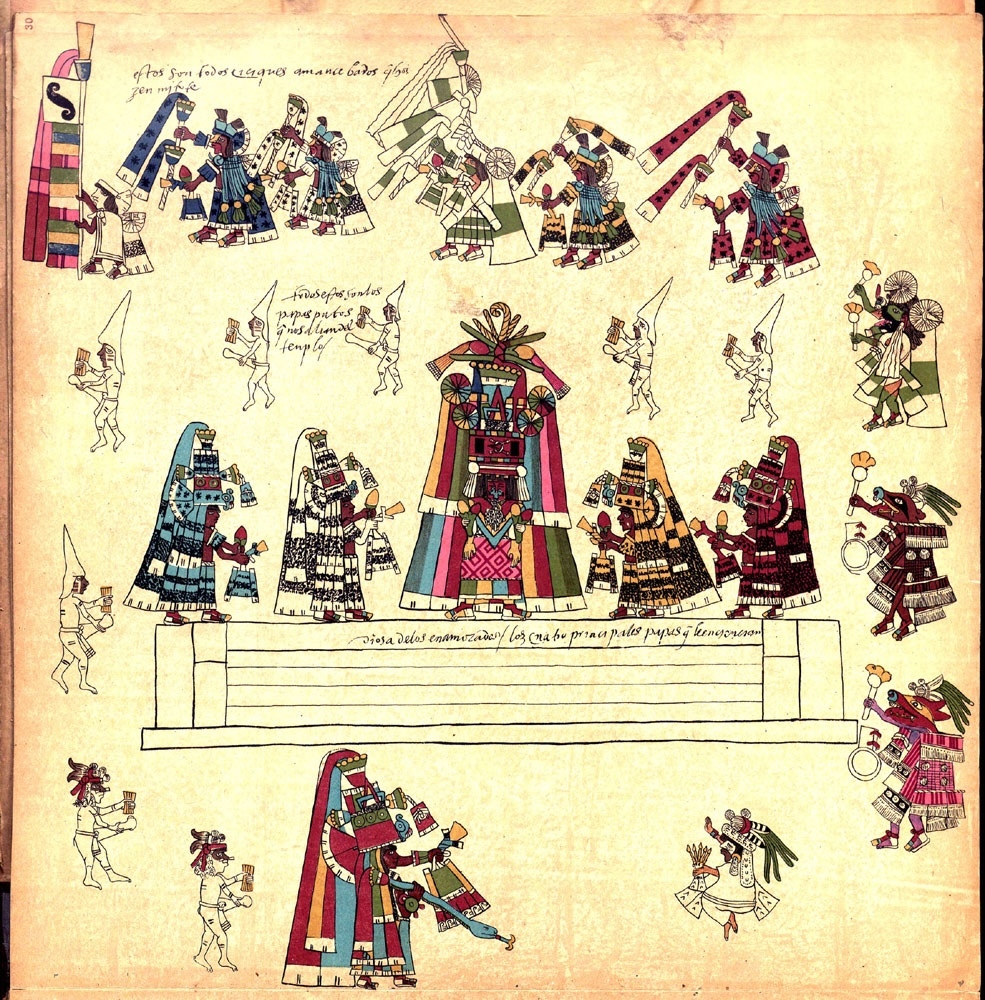 30
estos son todos caciques amance bados q̃ ha
zen mitote
todos estos son los
papas putos
q̃ no salian del
templo/
diosa delos enamorados / los principales papas q̃